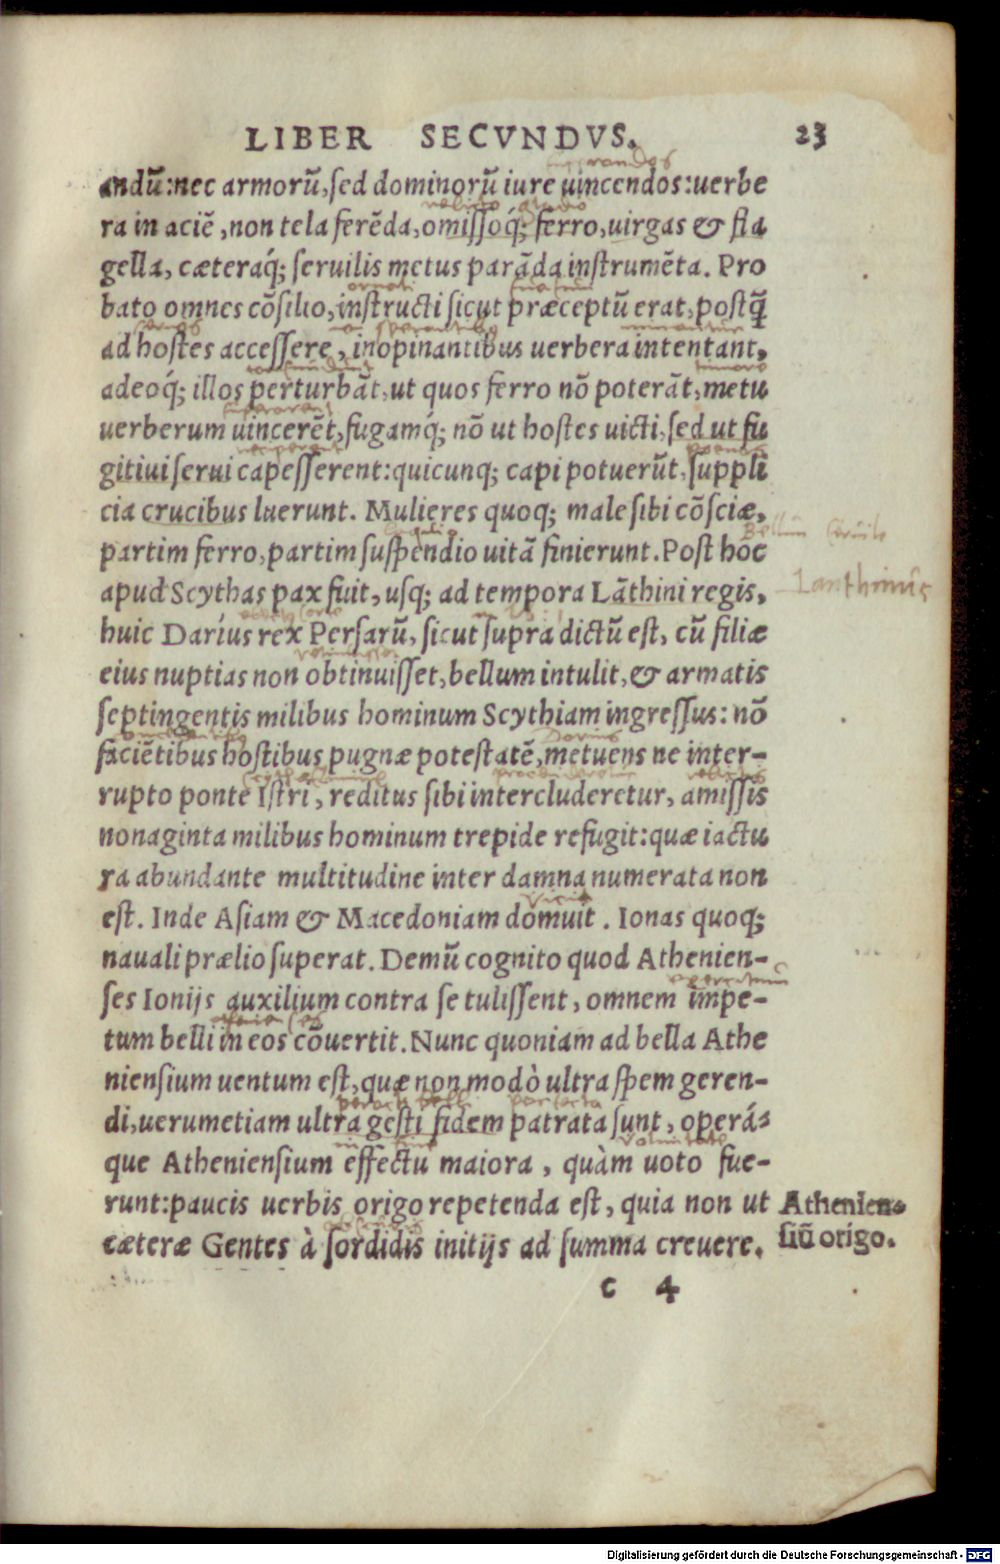 LIBER SECVNDVS. 23
andū: nec armorū, sed dominorū iure uincendos: uerbe
ra in aciē, non tela ferēda, omissoq́; ferro, uirgas & fla
gella, cæteraq́; seruilis metus parāda instrumēta. Pro
bato omnes cōsilio, instructi sicut præceptū erat, postq̄
ad hostes accessere, inopinantibus uerbera intentant,
adeoq́; illos perturbāt, ut quos ferro nō poterāt, metu
uerberum uincerēt, fugamq́; nō ut hostes uicti, sed ut fu
gitiui serui capesserent: quicunq; capi potuerūt, suppli
cia crucibus luerunt. Mulieres quoq; male sibi cōsciæ,
Bellum Ciuile
partim ferro, partim suspendio uitā finierunt. Post hoc
apud Scythas pax fuit, usq; ad tempora Lāthini regis,
Ianthinus
huic Daríus rex Persarū, sicut supra dictū est, cū filiæ
eius nuptias non obtinuisset, bellum intulit, & armatis
septingentis milibus hominum Scythiam ingressus: nō
Darius
faciētibus hostibus pugnæ potestatē, metuens ne inter-
rupto ponte Istri, reditus sibi intercluderetur, amissis
nonaginta milibus hominum trepide refugit: quæ iactu
ra abundante multitudine inter damna numerata non
est. Inde Asiam & Macedoniam domuit. Ionas quoq;
nauali prælio superat. Demū cognito quod Athenien-
ses Ionijs auxilium contra se tulissent, omnem impe-
tum belli in eos cōuertit. Nunc quoniam ad bella Athe
niensium uentum est, quæ non modò ultra spem geren-
di, uerumetiam ultra gesti fidem patrata sunt, operá-
que Atheniensium effectu maiora, quàm uoto fue-
runt: paucis uerbis origo repetenda est, quia non ut
cæteræ Gentes à sordidis initijs ad summa creuere.
Athenien-
siū origo.
c 4
Digitalisierung gefördert durch die Deutsche Forschungsgemeinschaft - DFG